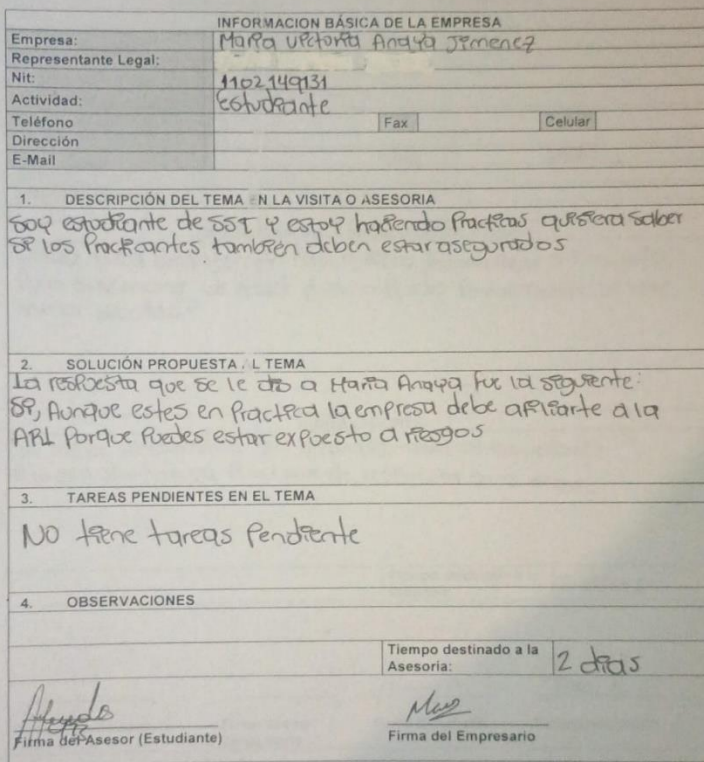 INFORMACION BÁSICA DE LA EMPRESA
Empresa: Maria Victoria Anaya Jimenez
Representante Legal:
Nit: 1102149131
Actividad: Estudiante
Teléfono Fax Celular
Dirección
E-Mail
1. DESCRIPCIÓN DEL TEMA EN LA VISITA O ASESORIA
Soy estudiante de SST y estoy haciendo Practicas quisiera saber
si los Practicantes también deben estar asegurados
2. SOLUCIÓN PROPUESTA AL TEMA
La respuesta que se le dio a Maria Anaya fue la siguiente:
Si, Aunque estes en Practica la empresa debe afiliarte a la
ARL Porque Puedes estar expuesto a riesgos
3. TAREAS PENDIENTES EN EL TEMA
No tiene tareas Pendiente
4. OBSERVACIONES
Tiempo destinado a la
Asesoria: 2 dias
Firma del Asesor (Estudiante) Firma del Empresario